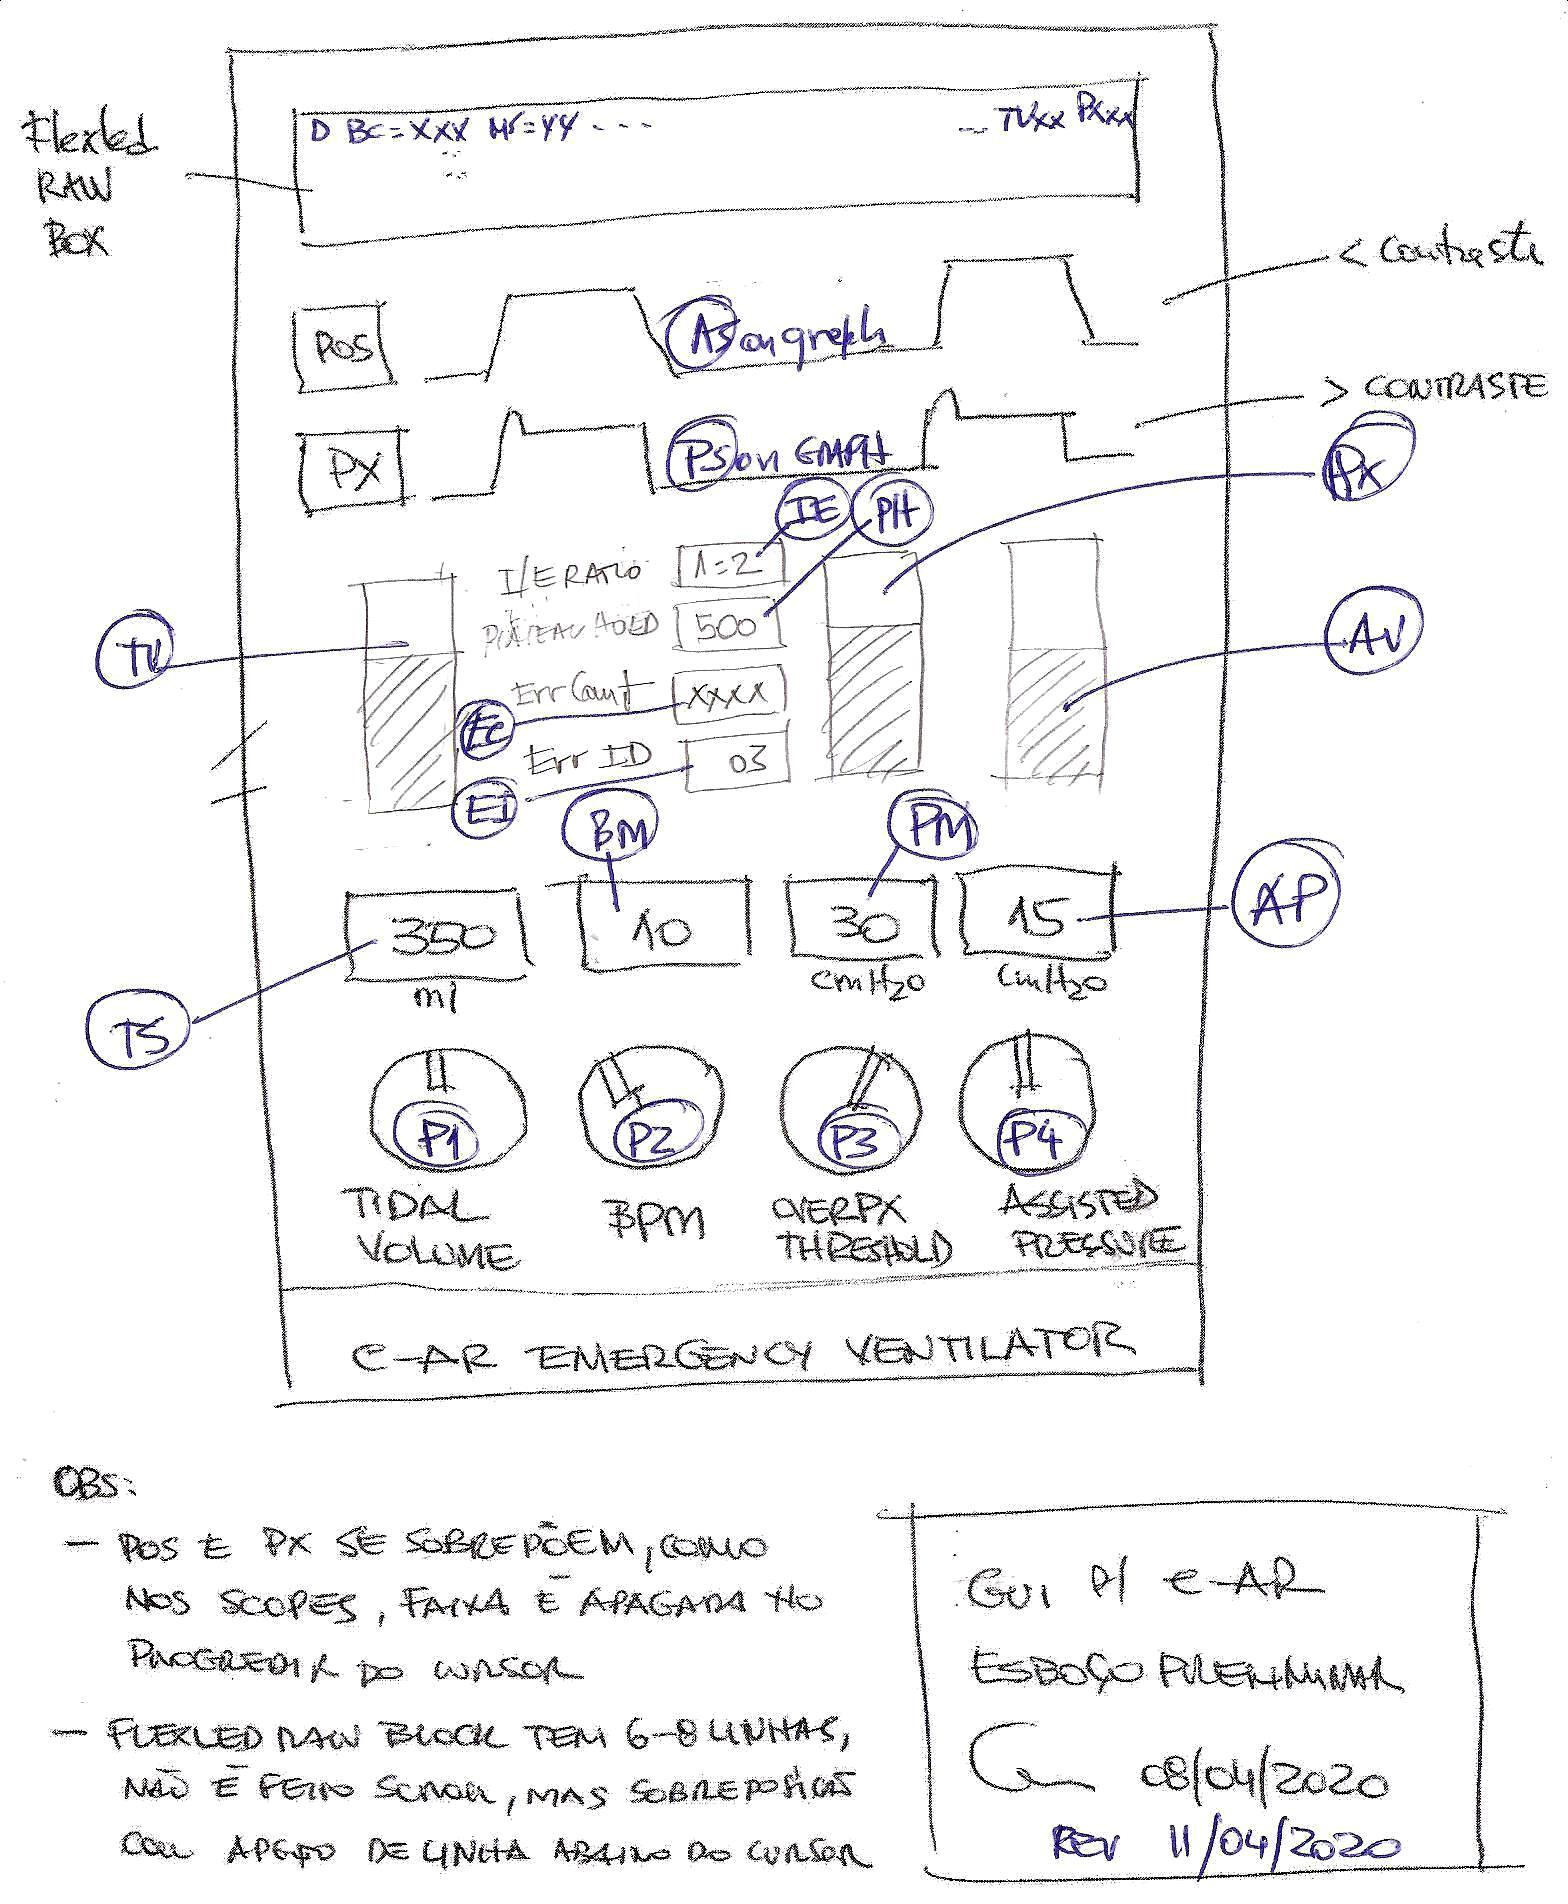 Flexled
RAW
BOX
D BC=XXX Mr=YY ---
-- TVxx Pxxx
< Contraste
POS
AS on graph
> CONTRASTE
PX
PS on GRAPH
PX
IE
PH
I/E RATIO
1=2
PLATEAU HOLD
500
TV
AV
Err Count
XXXX
EC
Err ID
03
EI
BM
PM
350
10
30
15
AP
ml
cmH2O
cmH2O
TS
P1
P2
P3
P4
TIDAL
VOLUME
BPM
OVERPX
THRESHOLD
ASSISTED
PRESSURE
C-AR EMERGENCY VENTILATOR
OBS:
- POS E PX SE SOBREPÕEM, COMO
NOS SCOPES, FAIXA É APAGADA NO
PROGREDIR DO CURSOR
- FLEXLED RAW BLOCK TEM 6-8 LINHAS,
NÃO É FEITO SCROLL, MAS SOBREPOSIÇÃO
COM DE LINHA ABAIXO DO CURSOR
GUI P/ C-AR
ESBOÇO PRELIMINAR
08/04/2020
REV 11/04/2020